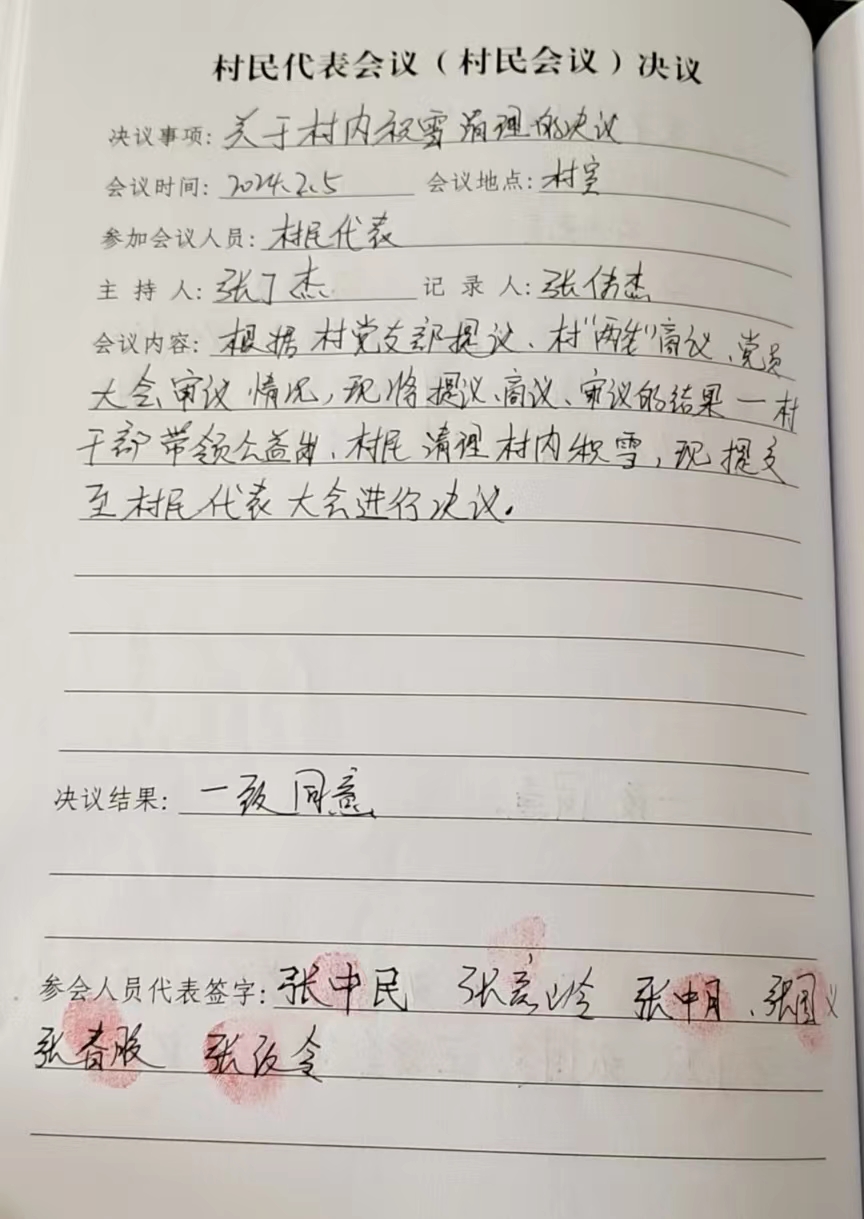 村民代表会议（村民会议）决议
决议事项: 关于村内积雪清理的决议
会议时间: 2024.2.5 会议地点: 村室
参加会议人员: 村民代表
主持人: 张丁杰 记录人: 张伟杰
会议内容: 根据村党支部提议、村"两委"商议、党员
大会审议情况，现将提议、商议、审议的结果一村
干部带领公益岗、村民清理村内积雪，现提交
至村民代表大会进行决议。
决议结果: 一致同意
参会人员代表签字: 张中民 张 岭 张中月、张国义
张春 张 令